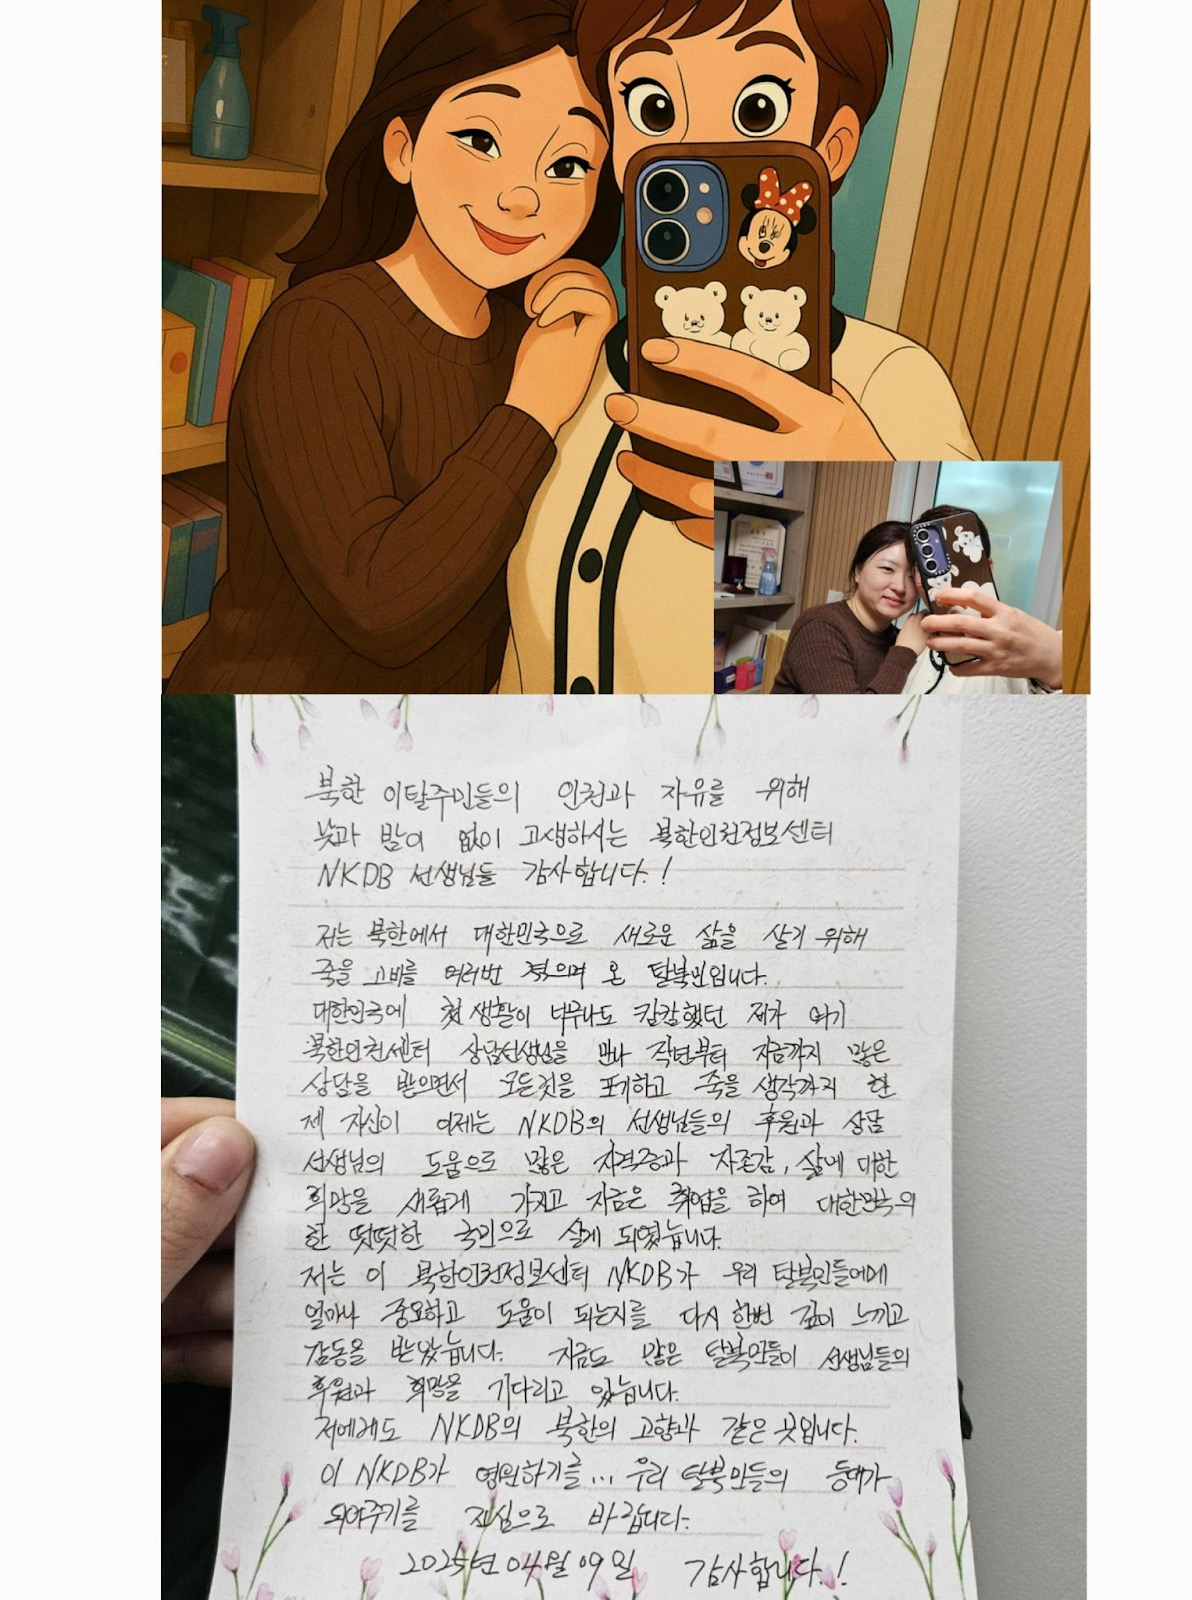 북한 이탈주민들의 인권과 자유를 위해
낮과 밤이 없이 고생하시는 북한인권정보센터
NKDB 선생님들 감사합니다.!
저는 북한에서 대한민국으로 새로운 삶을 살기 위해
죽을 고비를 여러번 겪으며 온 탈북민입니다.
대한민국에 첫 생활이 너무나도 캄캄했던 제가 여기
북한인권센터 상담선생님을 만나 작년부터 지금까지 많은
상담을 받으면서 모든것을 포기하고 죽을 생각까지 한
제 자신이 이제는 NKDB의 선생님들의 후원과 상담
선생님의 도움으로 많은 자격증과 자존감, 삶에 대한
희망을 새롭게 가지고 지금은 취업을 하여 대한민국의
한 떳떳한 국민으로 살게 되였습니다.
저는 이 북한인권정보센터 NKDB가 우리 탈북민들에게
얼마나 중요하고 도움이 되는지를 다시 한번 깊이 느끼고
감동을 받았습니다. 지금도 많은 탈북민들이 선생님들의
후원과 희망을 기다리고 있습니다.
저에게도 NKDB의 북한의 고향과 같은 곳입니다.
이 NKDB가 영원하기를... 우리 탈북민들의 등대가
되여주기를 진심으로 바랍니다.
2025년 04월 09일 감사합니다.!